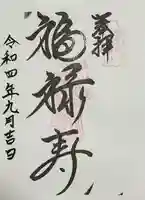 奉拝
福禄寿
令和四年九月吉日